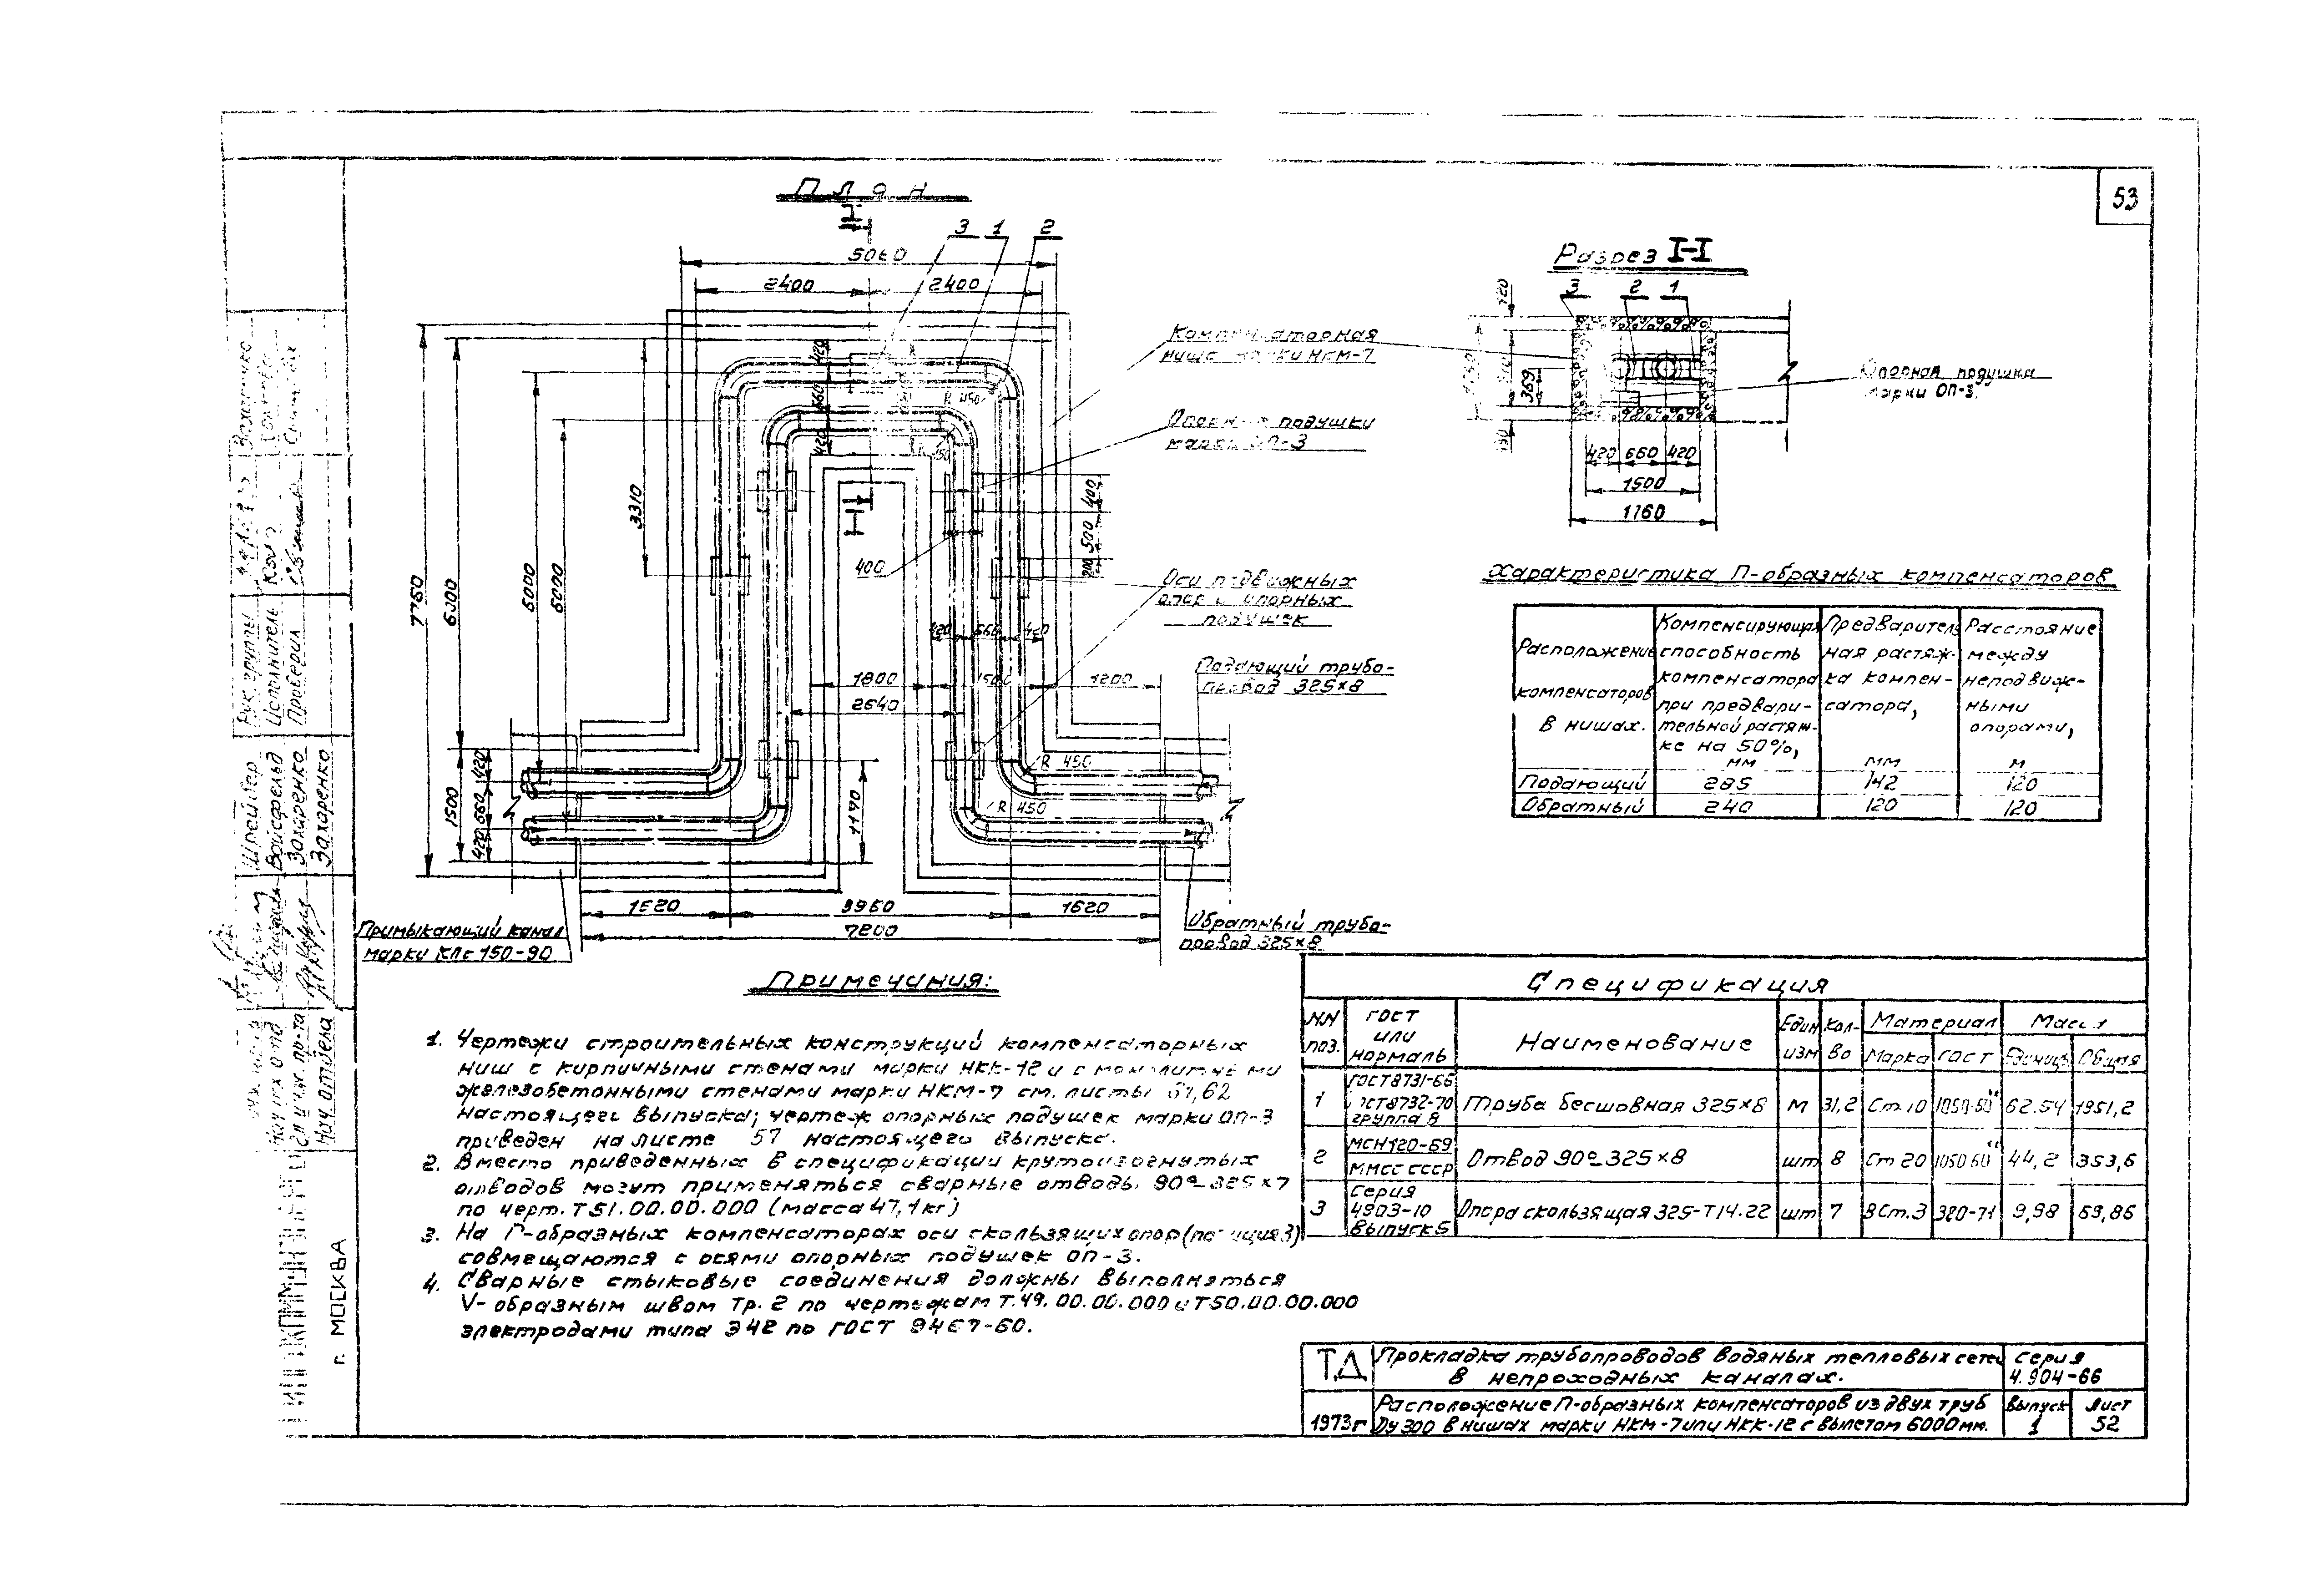 План
53
I
3 1 2
5060
2400 2400
Разрез I-I
3 2 1
Компенсаторная
ниша марки НКМ-7
Опорная подушка
марки ОП-3
Опорные подушки
марки ОП-3
Оси подвижных
опор и опорных
подушек
Подающий трубо-
провод 325×8
Обратный трубо-
провод 325×8
Примыкающий канал
марки КЛс 150-90
420
660
420
R 450
3310
6000
6000
6300
7760
400
400
500
200
420 660 420
1800 1500 1200
2640
R 450
R 450
1170
1500
420 660 420
1620 3960 1620
7200
369
420 660 420
1500
1760
Характеристика П-образных компенсаторов
Расположение компенсаторов в нишах.
Компенсирующая способность компенсатора при предвари-тельной растяж-ке на 50%, мм
Предваритель ная растяж-ка компен-сатора, мм
Расстояние между неподвиж-ными опорами, м
Подающий 285 142 120
Обратный 240 120 120
Примечания:
1. Чертежи строительных конструкций компенсаторных
ниш с кирпичными стенами марки НКК-12 и с монолитными
железобетонными стенами марки НКМ-7 см. листы 61,62
настоящего выпуска; чертеж опорных подушек марки ОП-3
приведен на листе 57 настоящего выпуска.
2. Вместо приведенных в спецификации крутоизогнутых
отводов могут применяться сварные отводы 90°-325×7
по черт. Т51.00.00.000 (масса 47,1кг)
3. На П-образных компенсаторах оси скользящих опор (позиция 3)
совмещаются с осями опорных подушек ОП-3.
4. Сварные стыковые соединения должны выполняться
V-образным швом Тр. 2 по чертежам Т.49.00.00.000 и Т50.00.00.000
электродами типа Э42 по ГОСТ 9467-60.
Спецификация
NN поз. ГОСТ или нормаль Наименование Един изм Кол-во Материал Масса
Марка ГОСТ Единицы Общая
1 ГОСТ8731-66 ГОСТ8732-70 группа В Труба бесшовная 325×8 м 31,2 Ст.10 1050-60** 62.54 1951,2
2 МСН120-69 ММСС СССР Отвод 90°-325×8 шт 8 Ст 20 1050 60** 44,2 353,6
3 Серия 4903-10 Выпуск 5 Опора скользящая 325-Т14.22 шт 7 ВСт.3 380-71 9,98 69,86
ТД
1973г
Прокладка трубопроводов водяных тепловых сетей
в непроходных каналах.
Серия
4.904-66
Расположение П-образных компенсаторов из двух труб
Ду 300 в нишах марки НКМ-7 или НКК-12 с вылетом 6000 мм.
Выпуск
1
Лист
52
Рук. группы
Исполнитель
Проверил
Шрейбер
Вайсфельд
Захаренко
Захаренко
Нач. отдела
г. МОСКВА